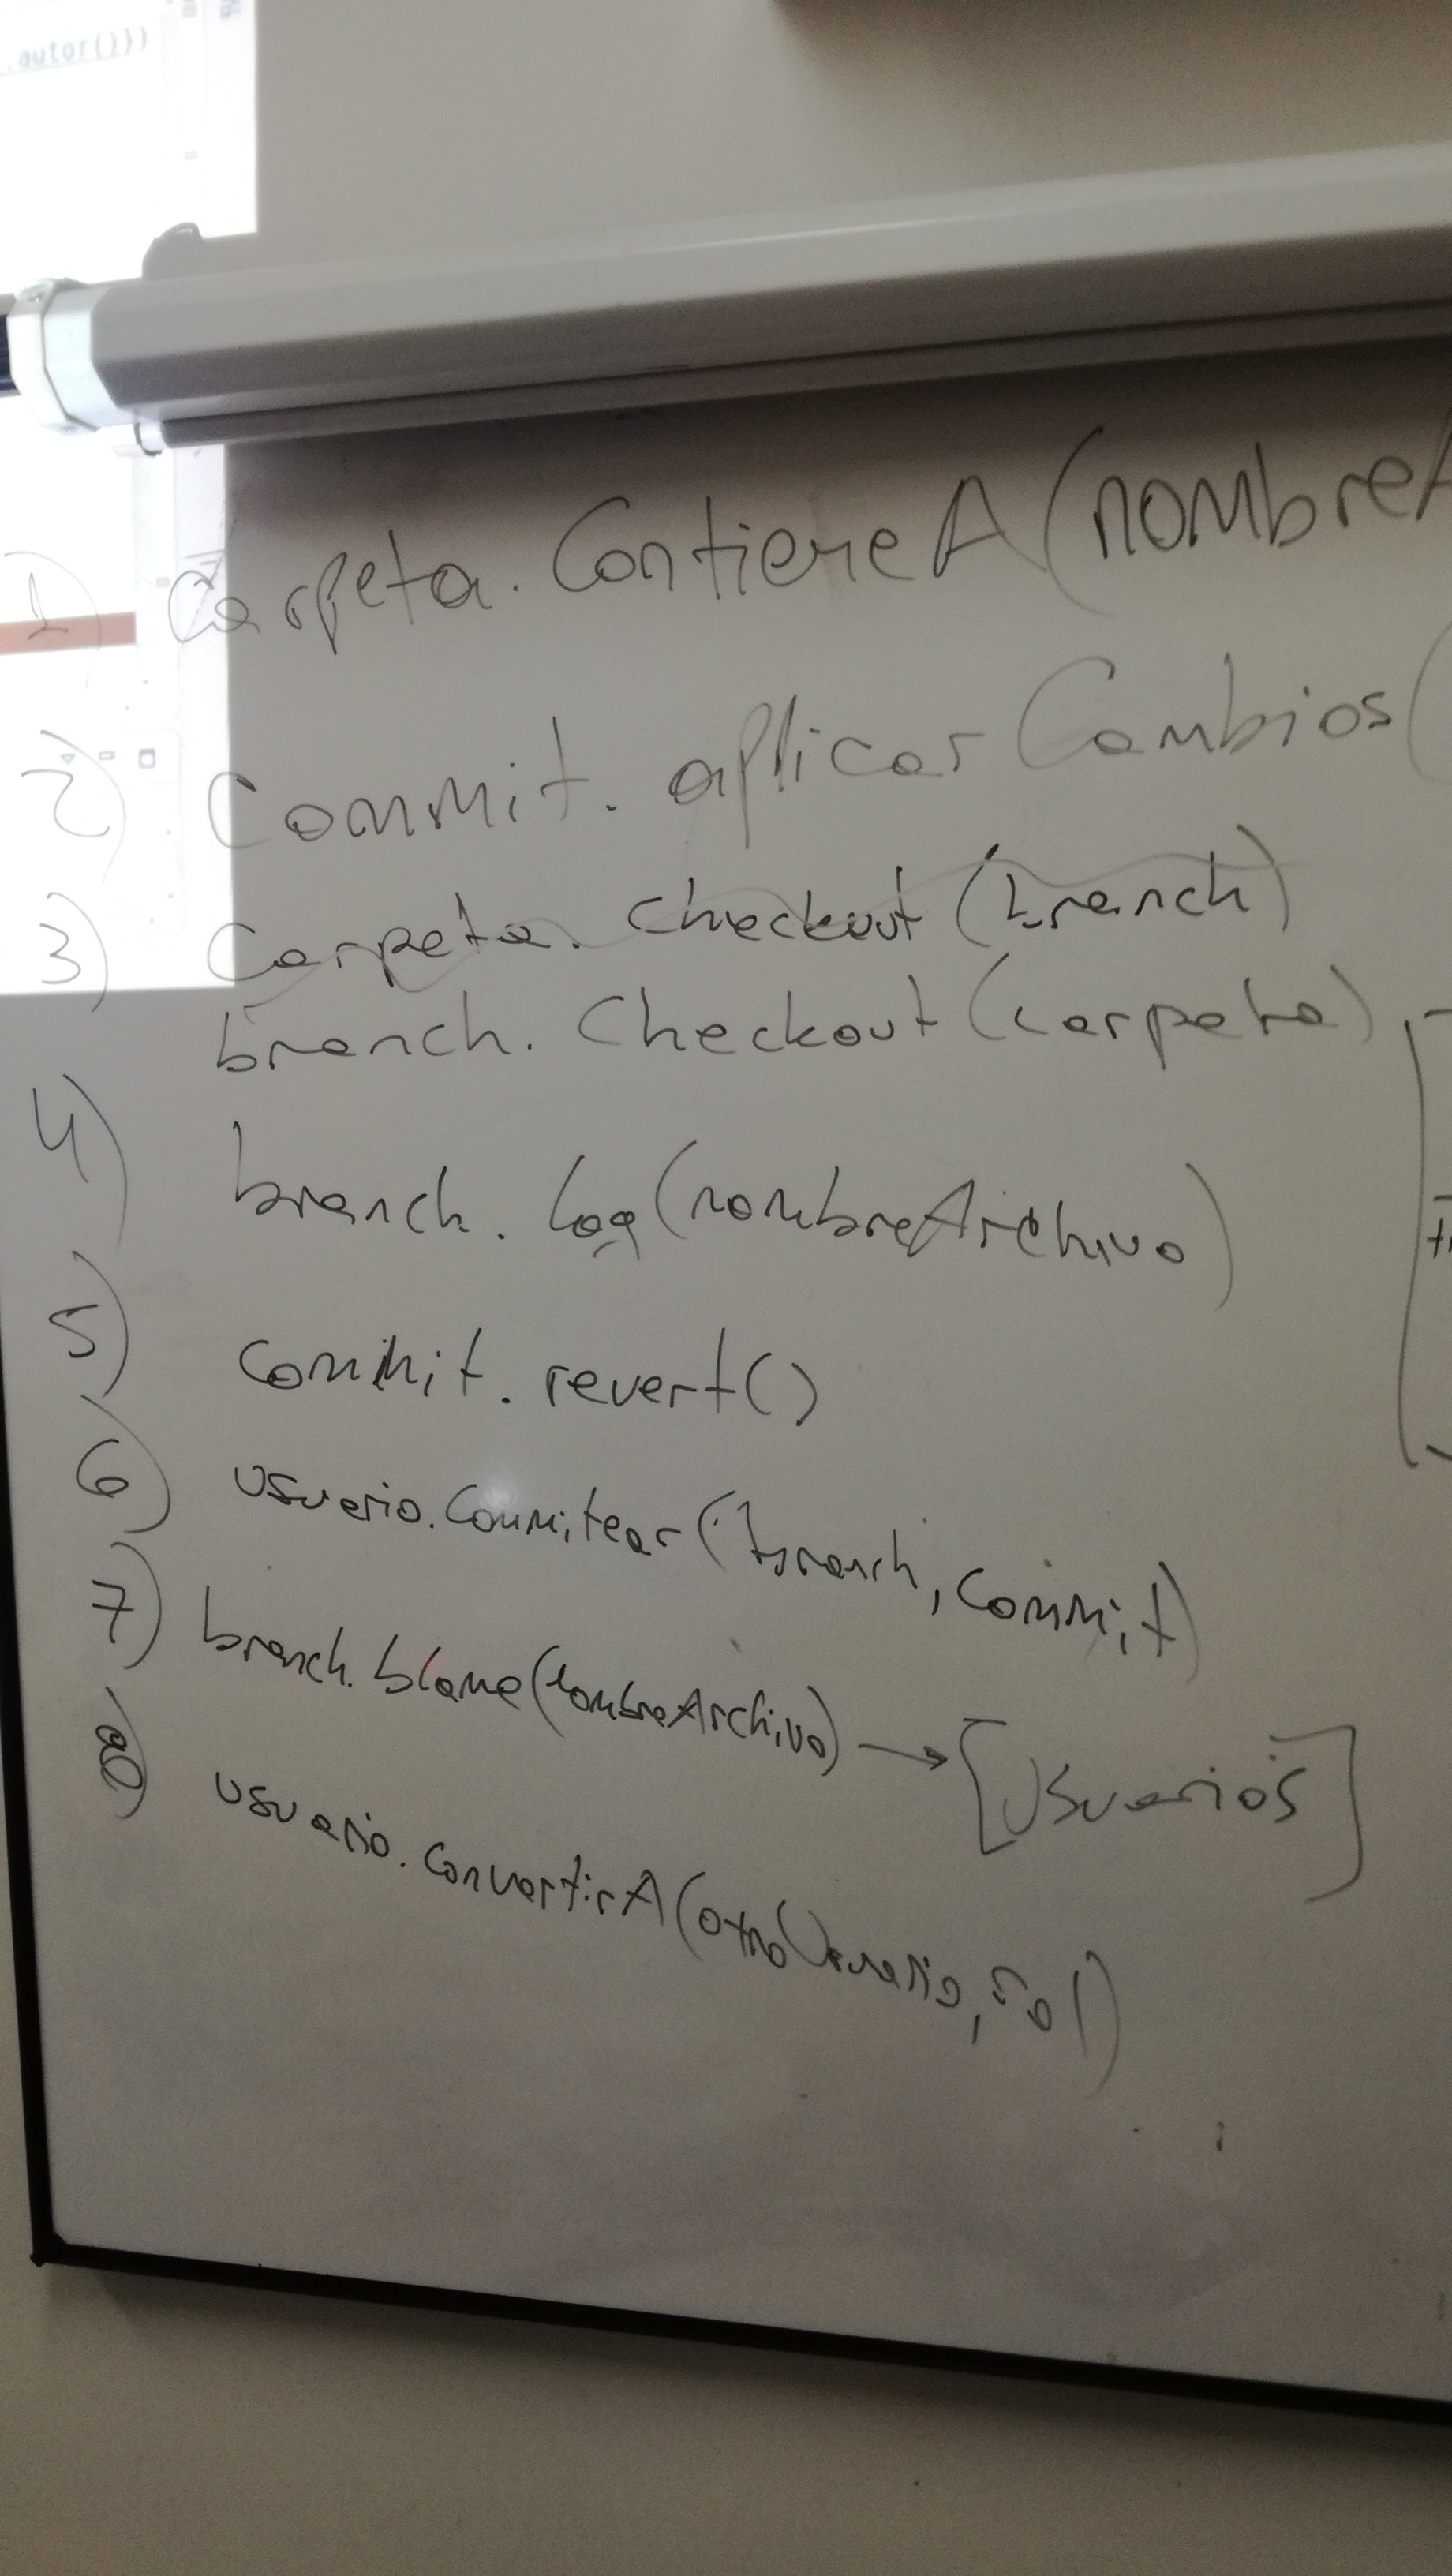 .autor()})
1) Carpeta.ContieneA(nombreA
2) Commit.aplicarCambios(
3) Carpeta.checkout(branch)
branch.Checkout(carpeta)
4) branch.log(nombreArchivo)
5) commit.revert()
6) usuario.Commitear(branch, commit)
7) branch.blame(nombreArchivo) → [Usuarios]
8) usuario.convertirA(otroUsuario, rol)